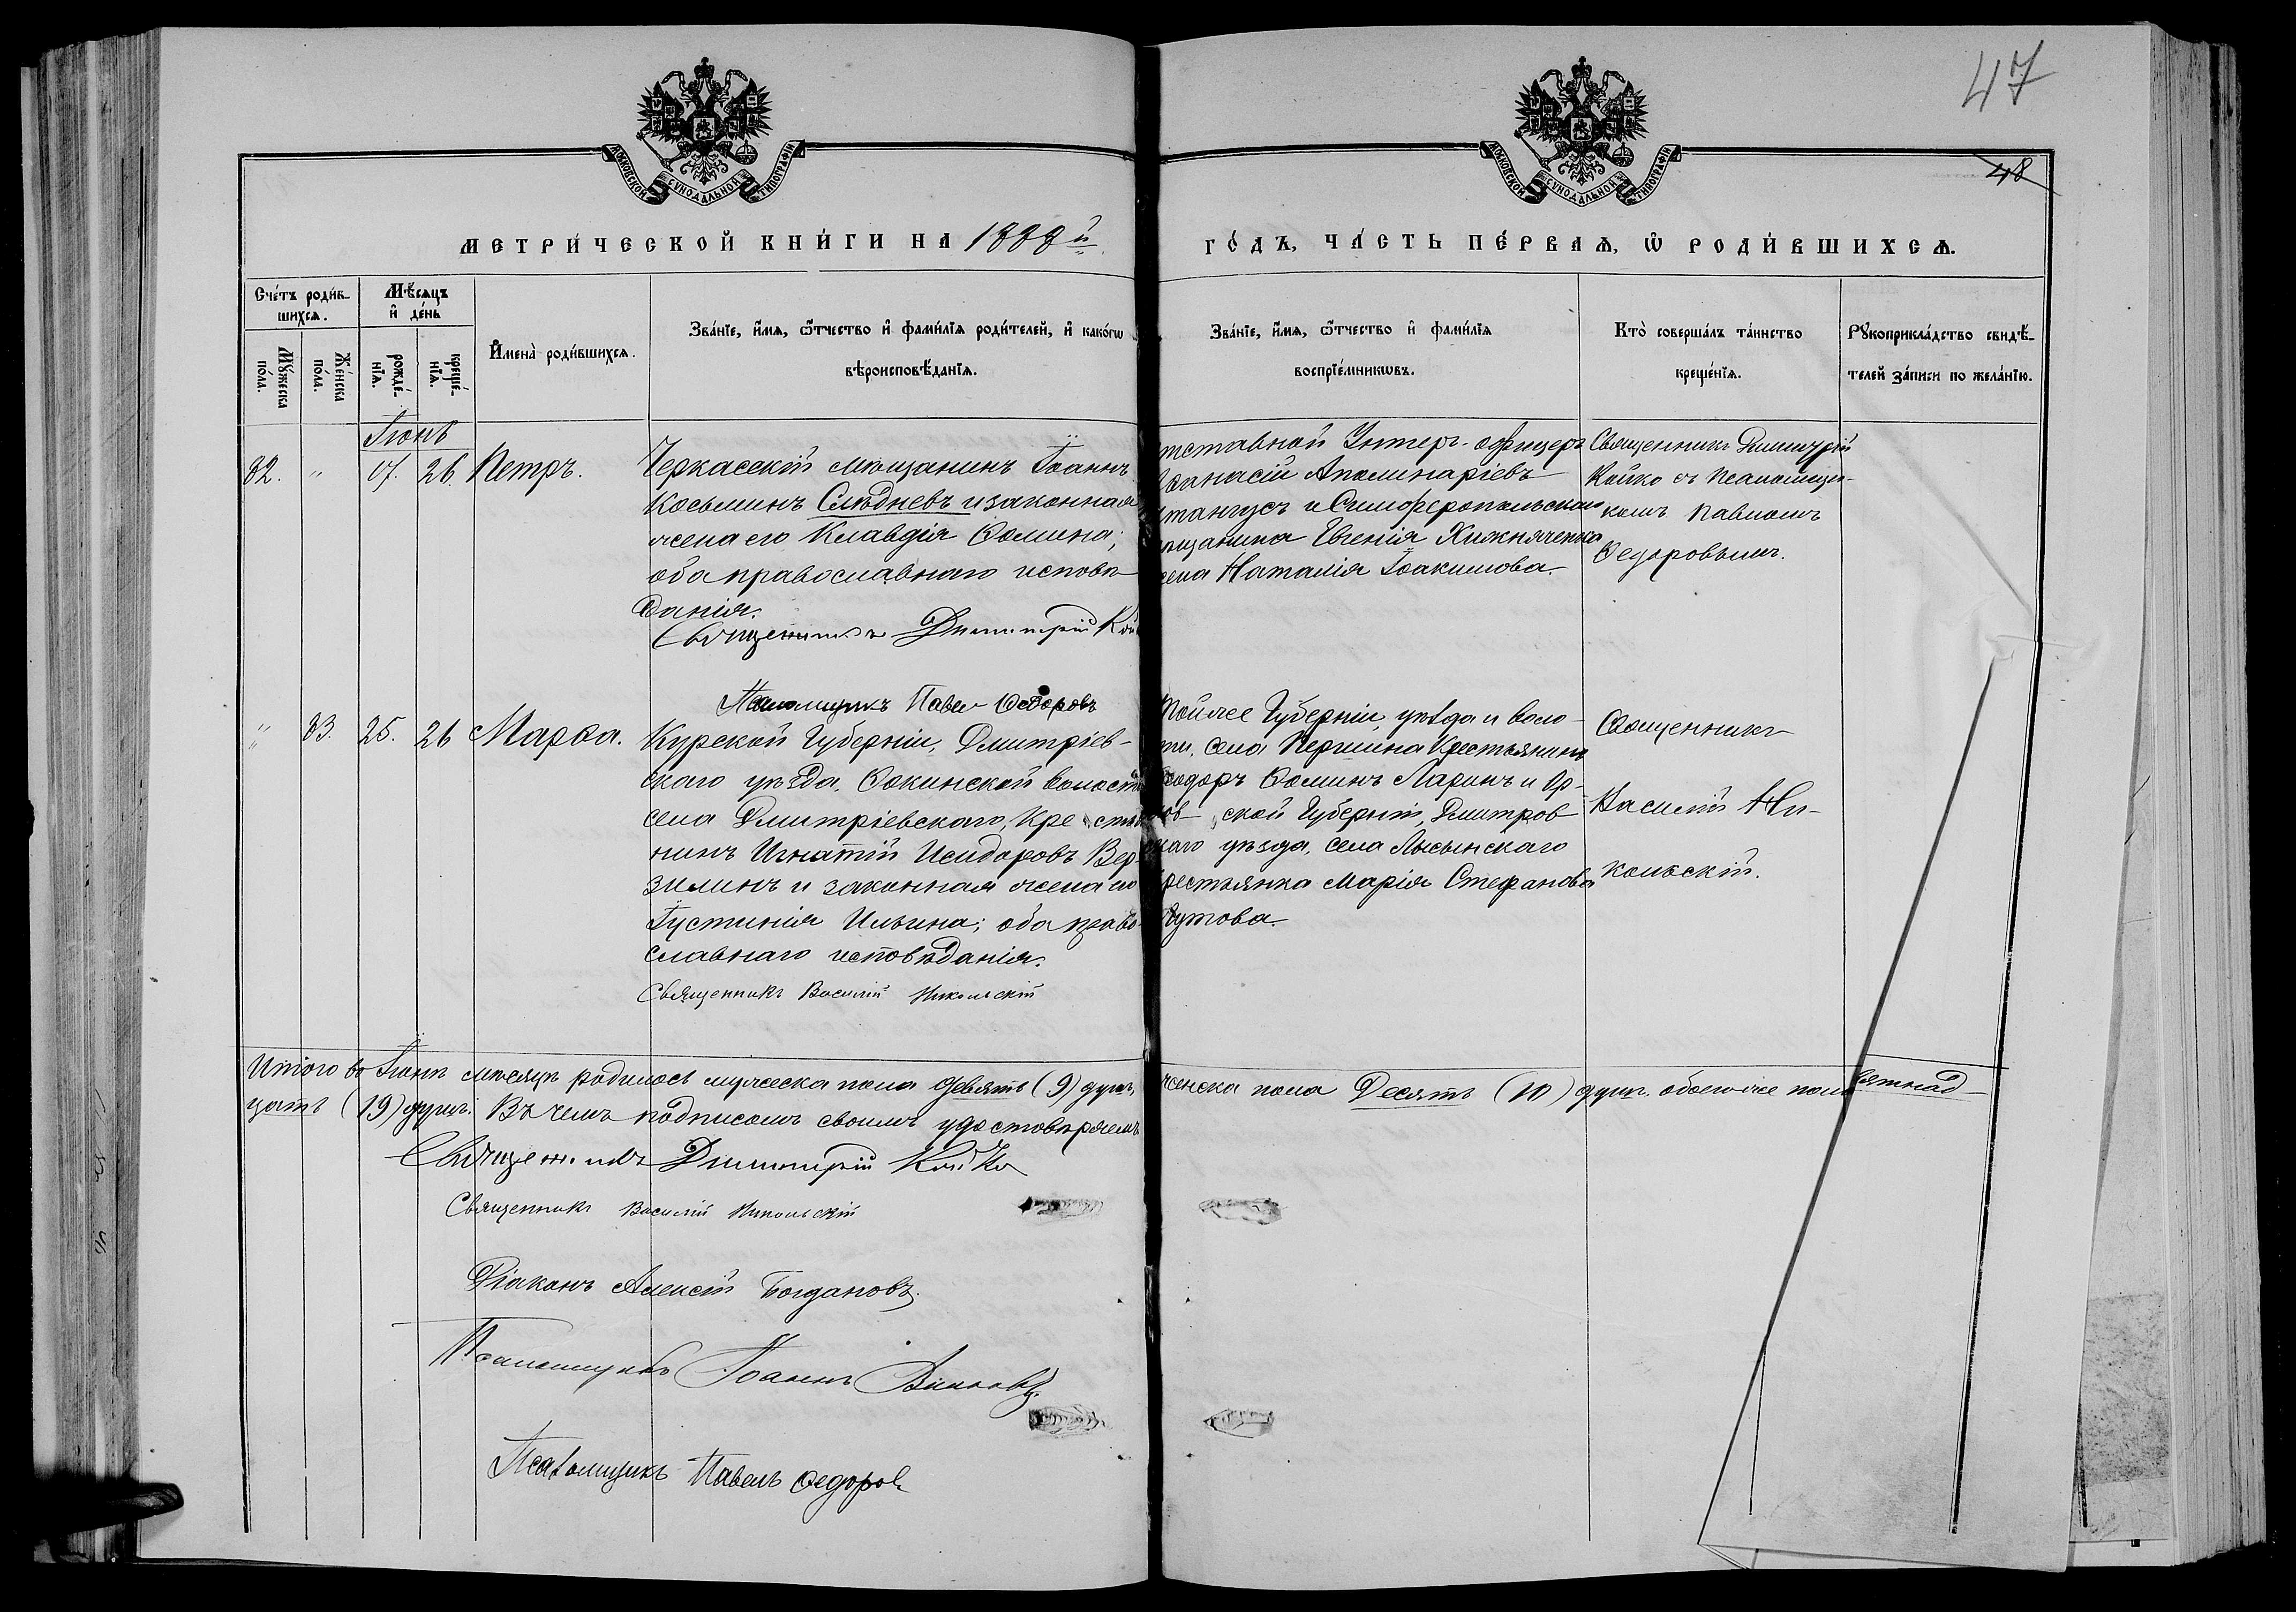 47
48
МОСКОВСКОЙ СУНОДАЛЬНОЙ ТИПОГРАФІИ
МОСКОВСКОЙ СУНОДАЛЬНОЙ ТИПОГРАФІИ
МЕТРИ́ЧЕСКОЙ КНИ́ГИ НА 1888й
ГО́ДЪ, ЧА́СТЬ ПЕ́РВАѦ, Ѡ РОДИ́ВШИХСѦ.
Сче́тъ роди́в-
шихсѧ.
Мꙋ́жеска по́ла.
Же́нска по́ла.
Мѣ́сѧцъ
и҆ де́нь
рожде́-
нїѧ.
креще́-
нїѧ.
И҆мена̀ роди́вшихсѧ.
Зва́нїе, и҆́мѧ, ѻ҆́тчество и҆ фами́лїѧ роди́телей, и҆ како́гѡ
вѣроисповѣ́данїѧ.
Зва́нїе, и҆́мѧ, ѻ҆́тчество и҆ фами́лїѧ
воспрїе́мникѡвъ.
Кто̀ соверша́лъ та́инство
креще́нїѧ.
Рꙋкоприкла́дство свидѣ́-
телей за́писи по жела́нїю.
Іюнь
32. " 17. 26. Петръ.
Черкасскій мѣщанинъ Іоаннъ
Косьминъ Слѣдневъ и законная
жена его Клавдія Ѳомина;
оба православнаго исповѣ-
данія.
Священникъ Димитрій Кой
Псаломщикъ Павелъ Ѳедоровъ
тставной Унтеръ-офицеръ
анасій Аполинаріевъ
и Симферопольскаго
щанина Евгенія Хижняченка
ена Наталія Іоакимова.
Священникъ Димитрій
Койко съ Псаломщи-
комъ Павломъ
Ѳедоровымъ.
" 33. 25. 26 Марѳа.
Курской Губерніи, Дмитріев-
скаго уѣзда, Ѳокинской волости
села Дмитріевскаго, Крестья
нинъ Игнатій Исидоровъ Вер-
зилинъ и законная жена его
Іустинія Ильина; оба право-
славнаго исповѣданія.
Священникъ Василій Никольскій
Той же Губерніи, уѣзда и воло-
ти, села Першина Крестьянинъ
еодоръ Ѳоминъ Ларинъ и Ор-
лов ской Губерніи, Дмитров
скаго уѣзда, села Лысынскаго
рестьянка Марія Стефанова
утова.
Священникъ
Василій Ни-
кольскій.
Итого во Іюнѣ мѣсяцѣ родилось мужеска пола девять (9) душъ, женска пола Десять (10) душъ, обоего же пола вятнад-
цать (19) душъ. Въ чемъ подписомъ своимъ удостовѣряемъ
Священникъ Димитрій Койко
Священникъ Василій Никольскій
Діаконъ Алексій Богдановъ.
Псаломщикъ Іоаннъ
Псаломщикъ Павелъ Ѳедоровъ